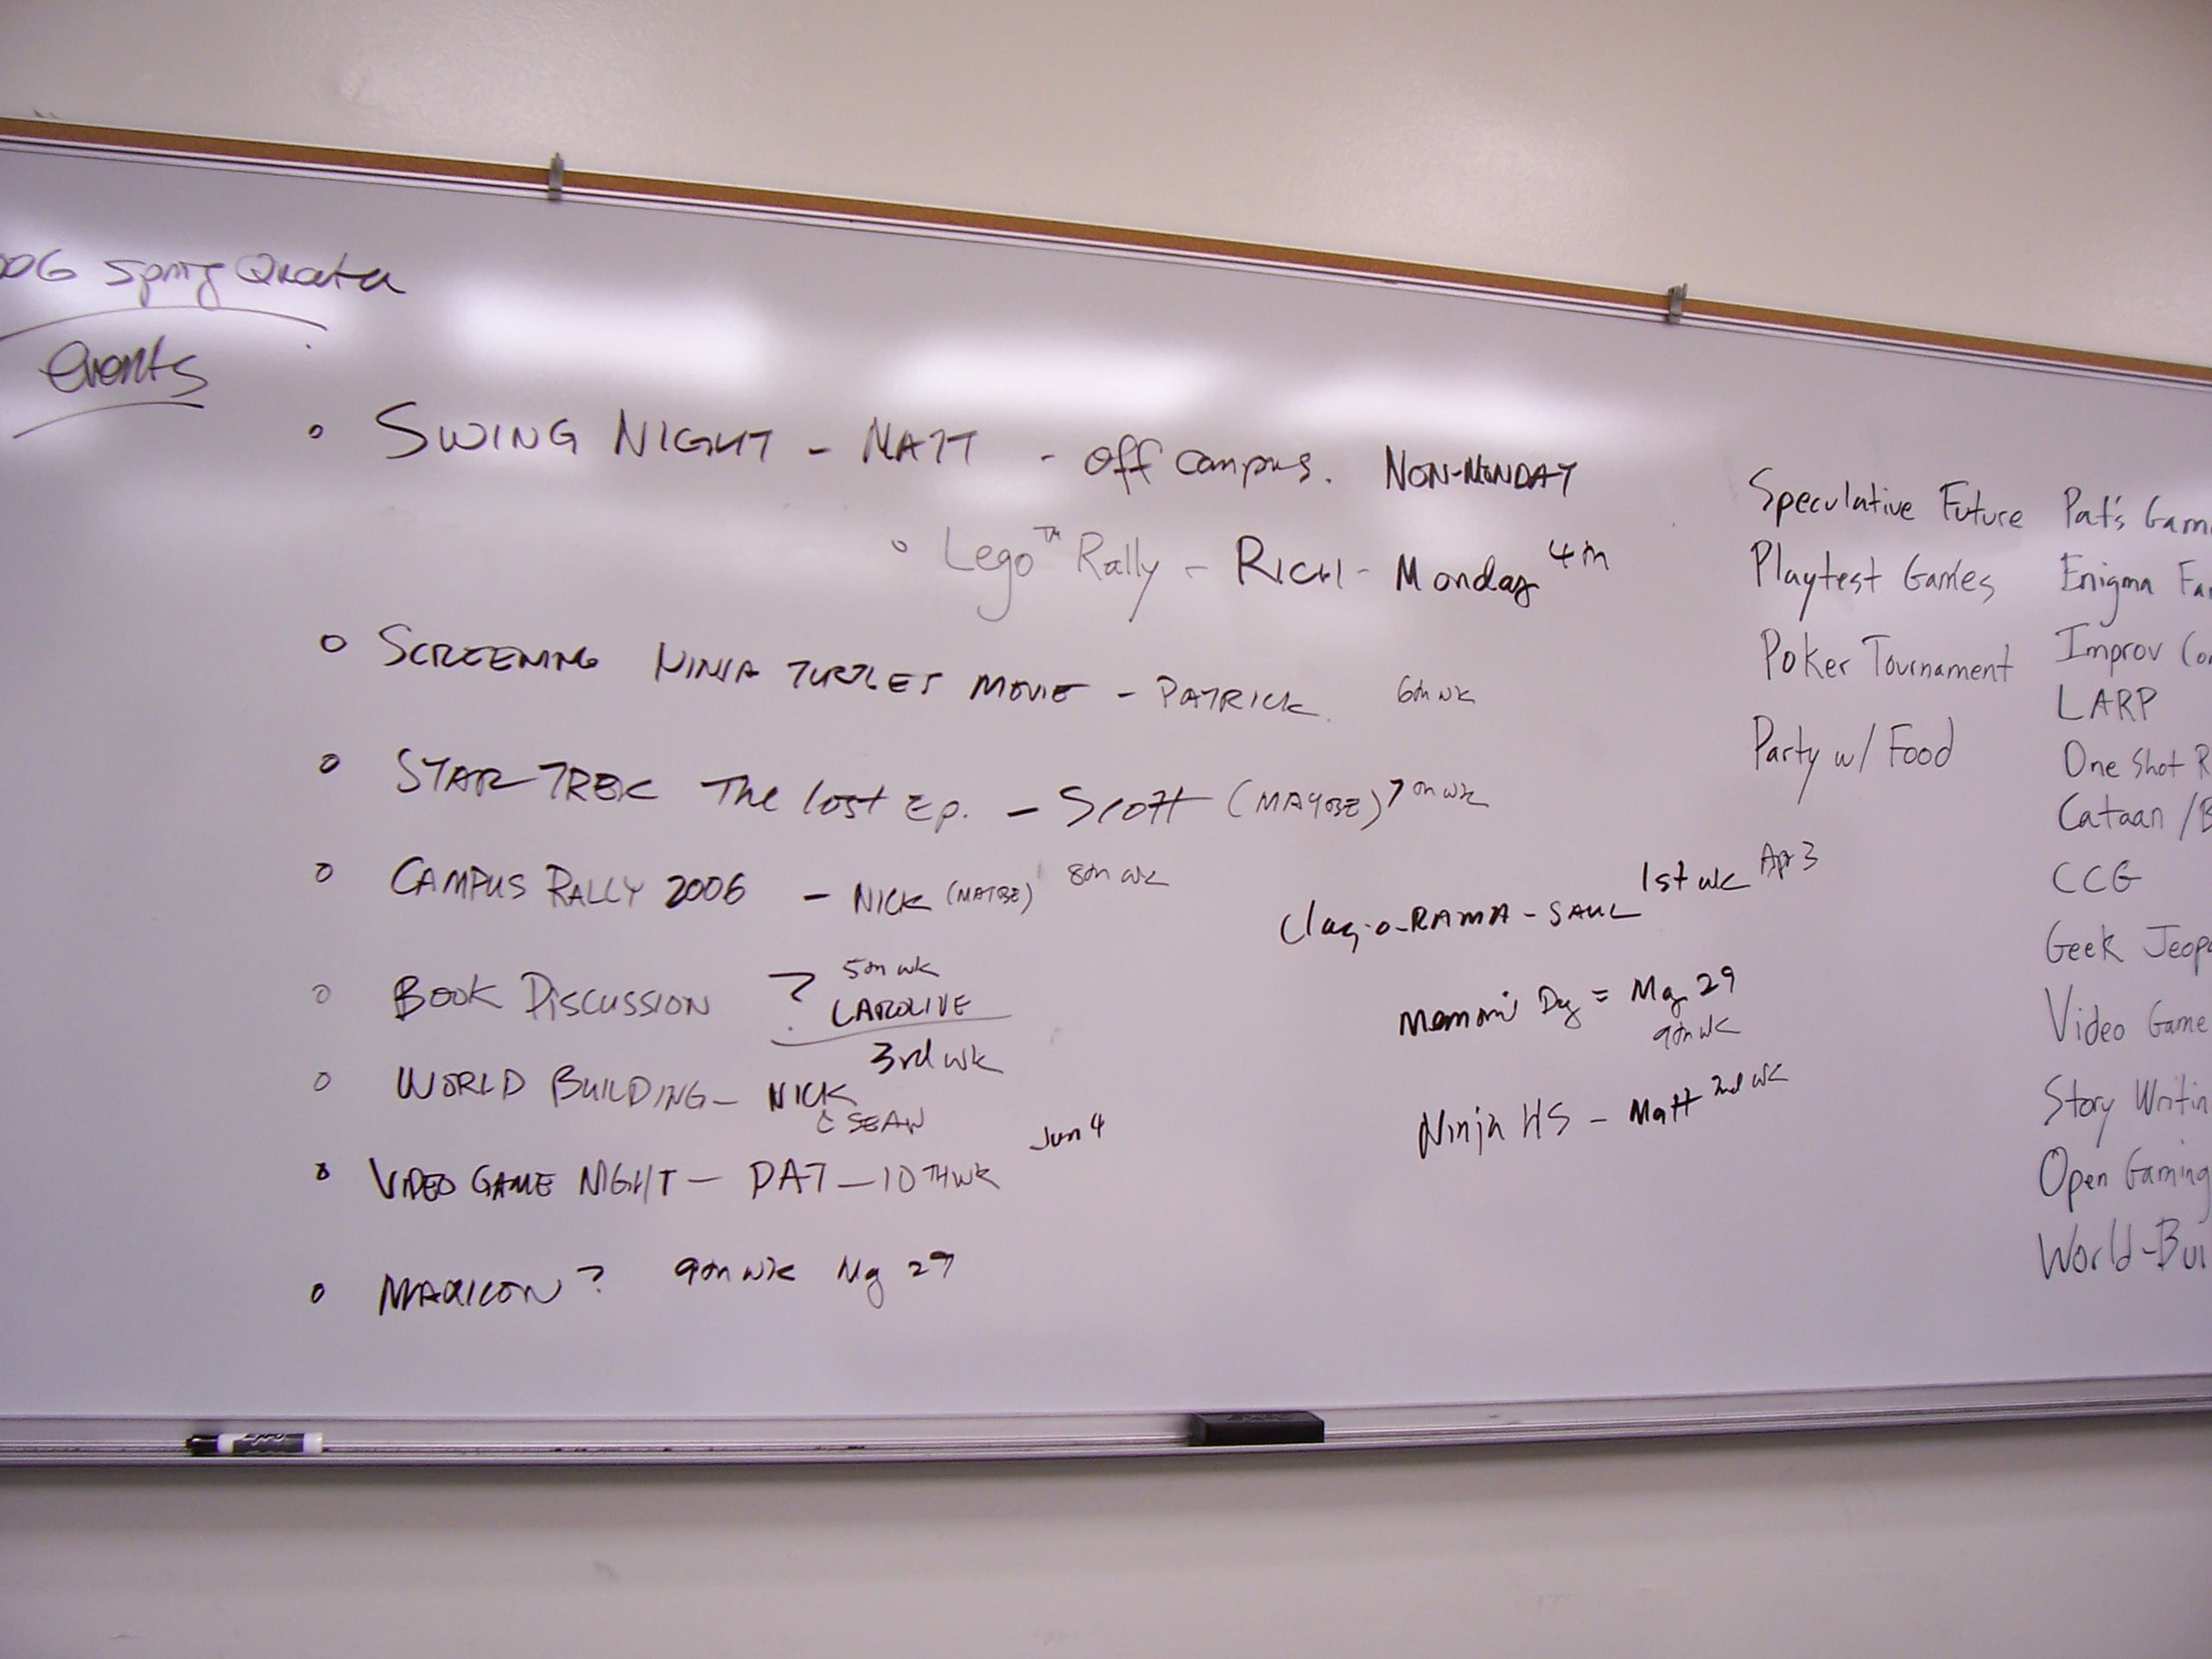 006 Spring Quarter
events
o SWING NIGHT - MATT - off campus. NON-MONDAY
o Lego™ Rally - RICH - Monday 4th
o SCREENING NINJA TURTLES MOVIE - PATRICK. 6th wk
o STAR TREK The lost Ep. - Scott (MAYBE) 7th wk
o CAMPUS RALLY 2006 - NICK (MAYBE) 8th wk
o BOOK DISCUSSION ? 5th wk
CAROLINE
o WORLD BUILDING - NICK 3rd wk
& SEAN
o VIDEO GAME NIGHT - PAT - 10TH WK Jun 4
o MAXICON? 9th wk May 29
-o-RAMA - SAUL 1st wk Apr 3
Day = May 29
9th wk
Ninja HS - Matt 2nd wk
Speculative Future
Playtest Games
Poker Tournament
Party w/ Food
Pat's Gam
Enigma Fa
Improv Co
LARP
One Shot R
Cataan / B
CCG
Geek Jeop
Video Game
Story Writin
Open Gaming
World-Bui